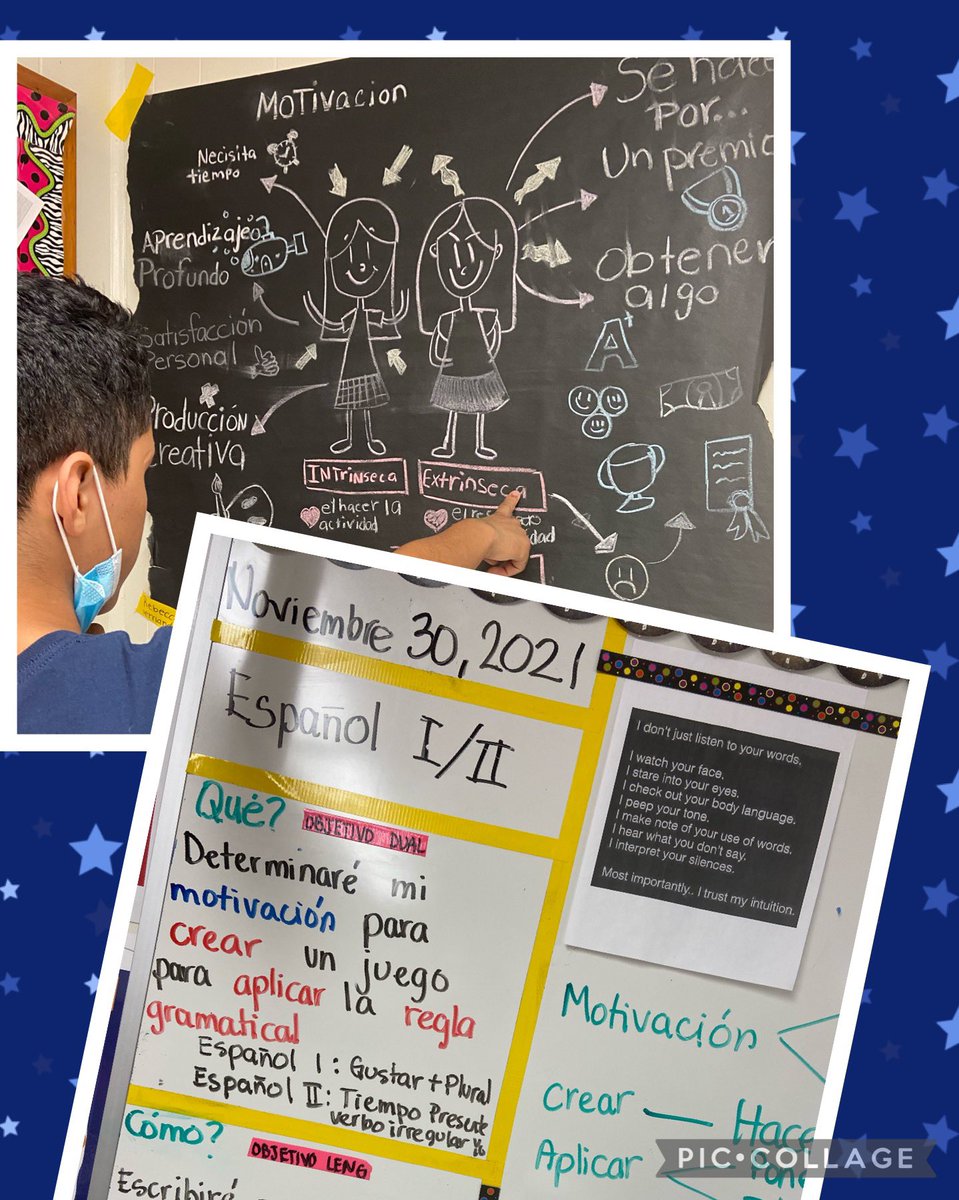 MOTIVACION
Necisita
tiempo
APrendizaje
Profundo
Satisfacción
Personal
Producción
Creativa
INTrinseca
el hacer la
actividad
Extrinseca
Se hace
Por...
Un premio
Obtener
algo
A+
Noviembre 30, 2021
Español I/II
Qué? OBJETIVO DUAL
Determinaré mi
motivación para
crear un juego
para aplicar la regla
gramatical
Español I : Gustar + Plural
Español II : Tiempo Presente
verbo irregular
Cómo? OBJETIVO LENG
Escribiré
I don't just listen to your words.
I watch your face.
I stare into your eyes.
I check out your body language.
I peep your tone.
I make note of your use of words.
I hear what you don't say.
I interpret your silences.
Most importantly.. I trust my intuition.
Motivación
Crear — Hace
Aplicar
PIC•COLLAGE